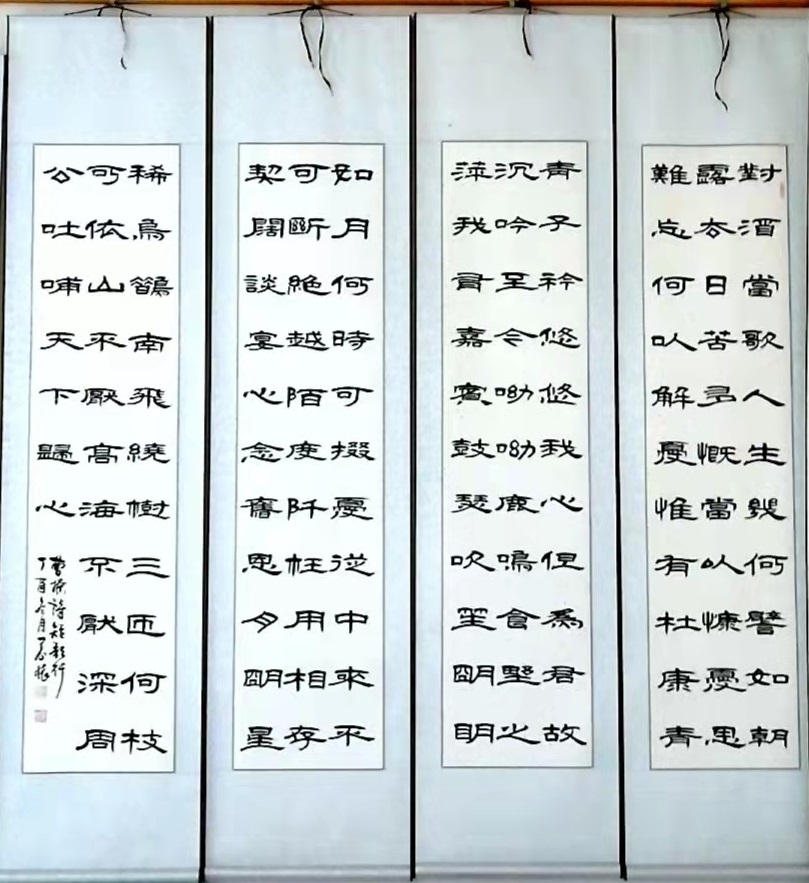 對酒當歌人生幾何譬如朝
露去日苦多慨當以慷憂思
難忘何以解憂惟有杜康青
青子衿悠悠我心但為君故
沉吟至今呦呦鹿鳴食野之
萍我有嘉賓鼓瑟吹笙明明
如月何時可掇憂從中來不
可斷絕越陌度阡枉用相存
契闊談宴心念舊恩月明星
稀烏鵲南飛繞樹三匝何枝
可依山不厭高海不厭深周
公吐哺天下歸心
曹操詩短歌行
丁酉冬月